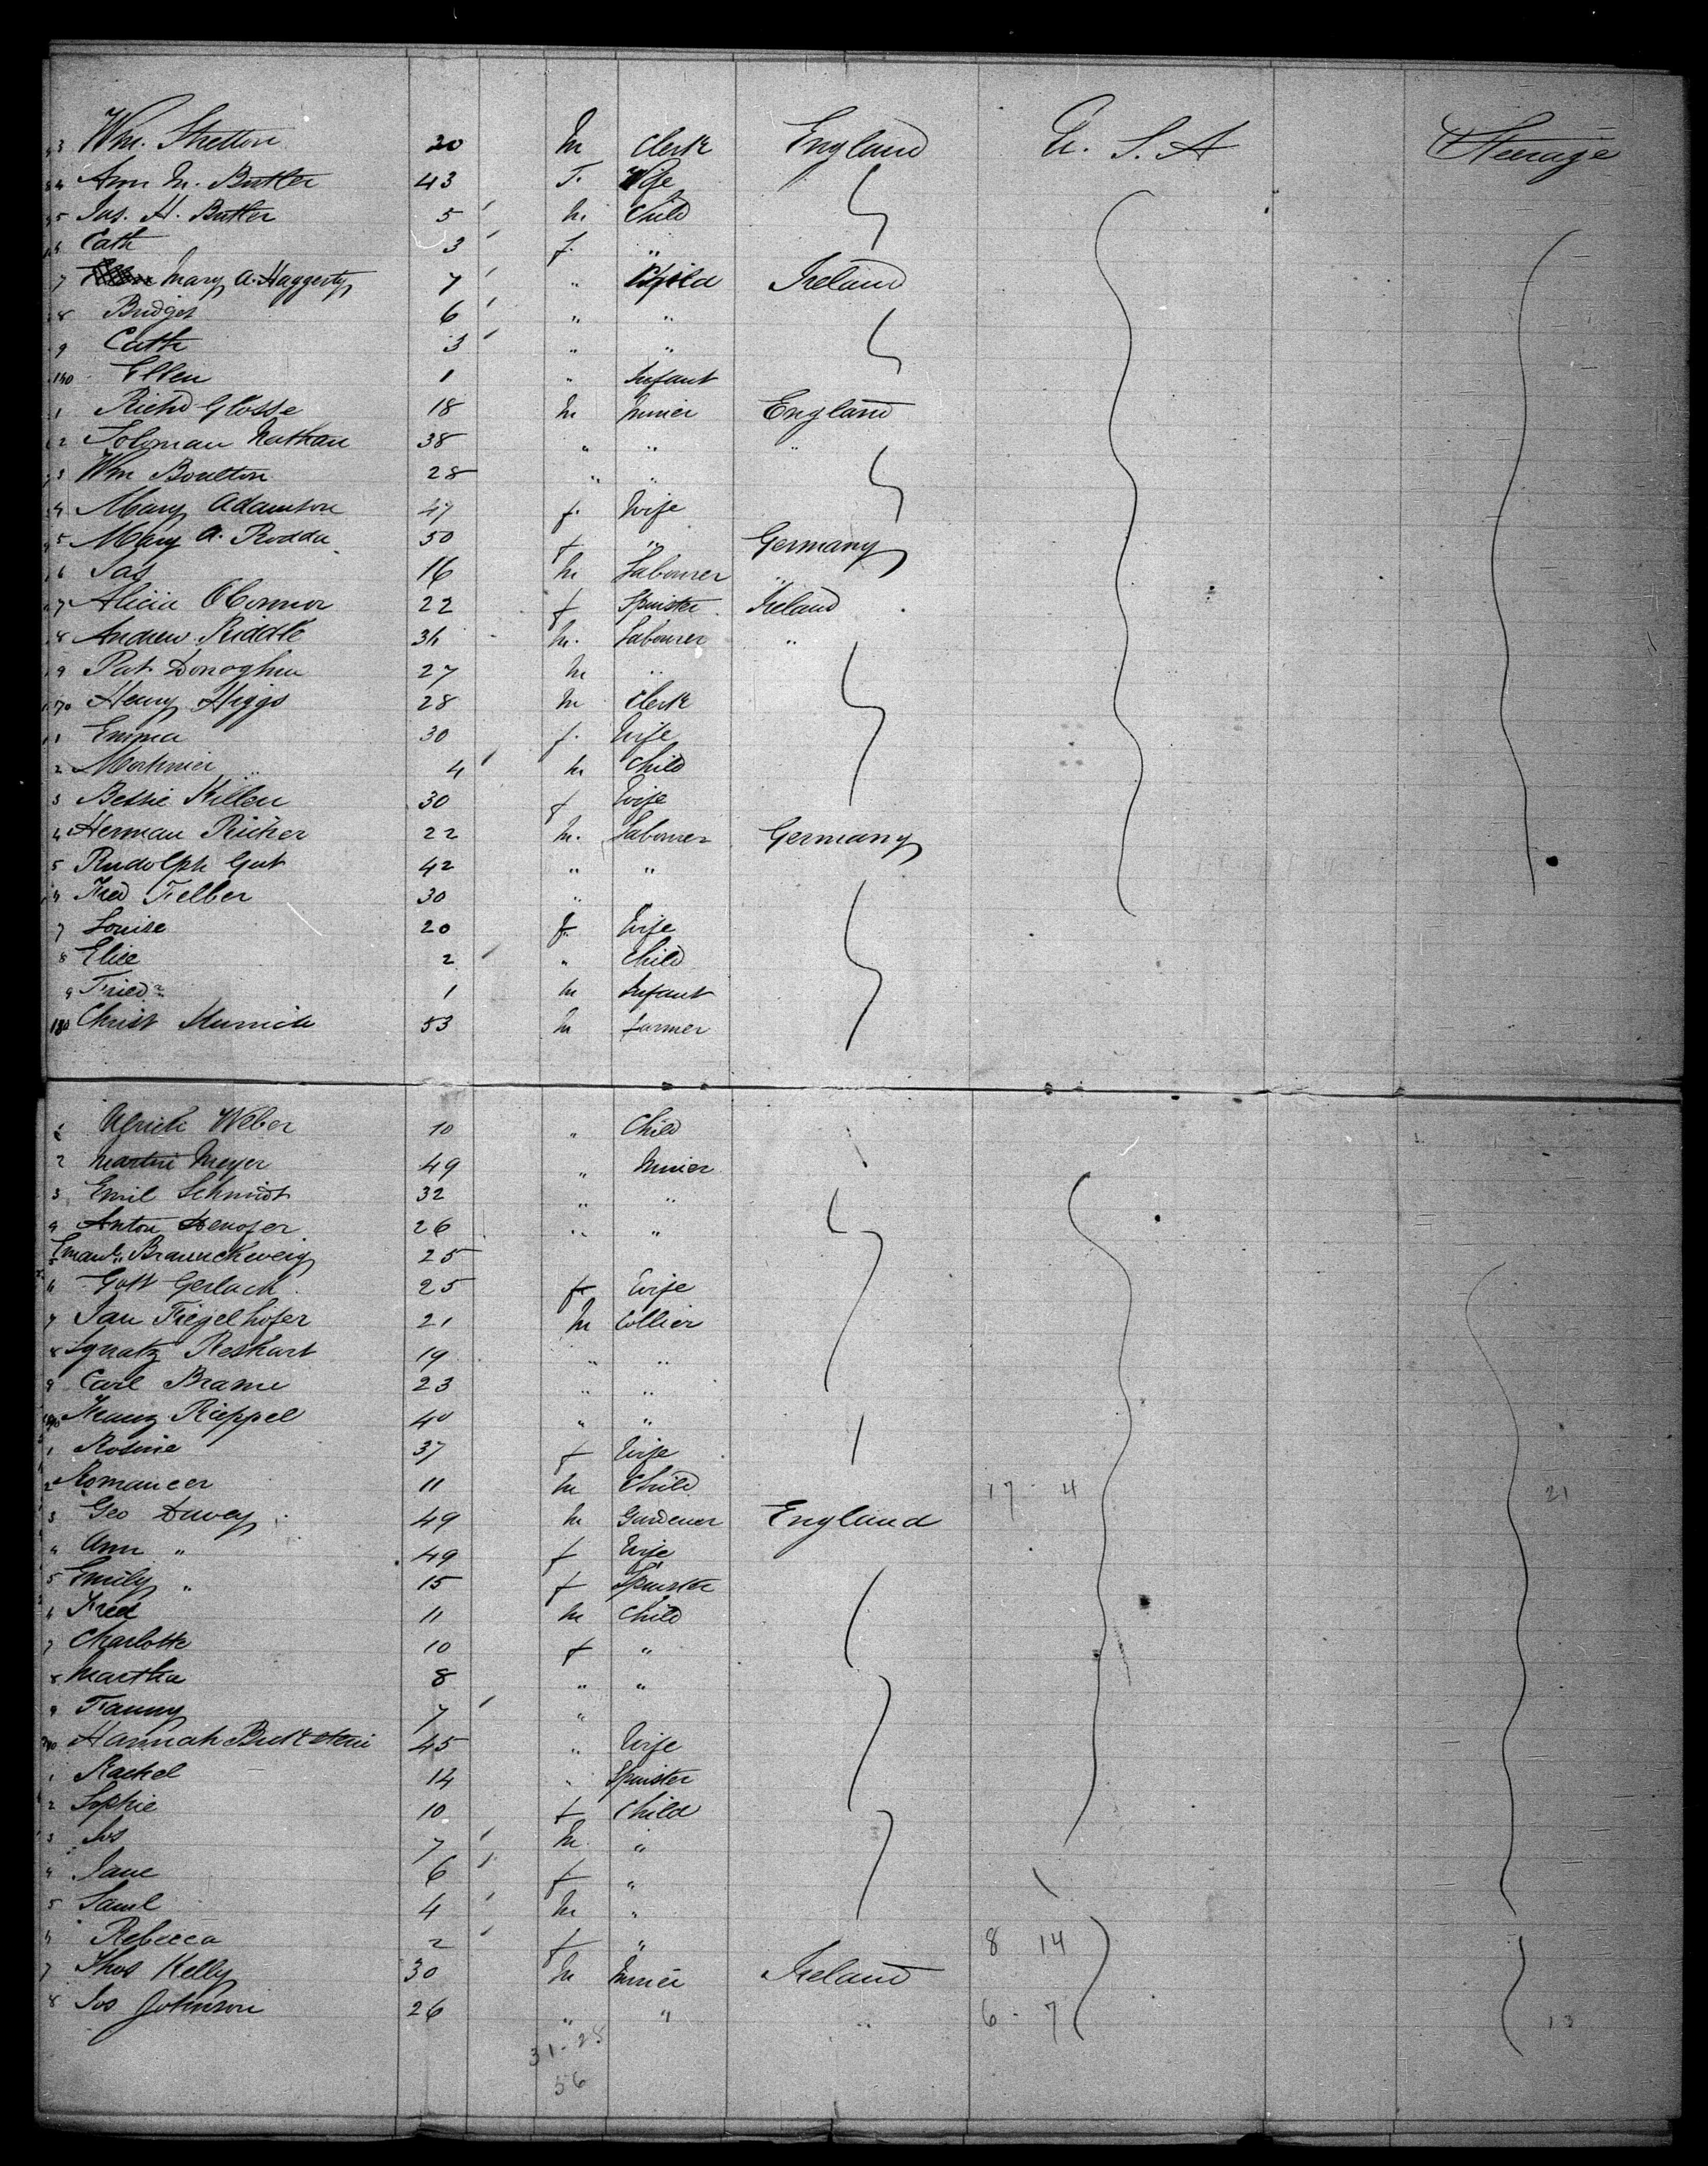 3 Wm. Stretton 30 M Clerk England U. S. A Steerage
4 Ann M. Butler 43 F. Wife
5 Jas. H. Butler 5 M Child
6 Cath 3 f. "
7 Mary A. Haggerty 7 " Child Ireland
8 Bridget 6 " "
9 Cath 3 " "
160 Ellen 1 " Infant
1 Richd Glosse 18 M Miner England
2 Soloman Nathan 38 " " "
3 Wm Boulton 28 " "
4 Mary Adamson 47 f. Wife
5 Mary A. Rodda 50 f " Germany
6 Jas 16 M Labourer "
7 Alicia OConnor 22 f Spinster Ireland
8 Andrew Riddle 34 M. Labourer "
9 Pat Donoghue 27 M "
170 Henry Higgs 28 M Clerk
1 Emma 30 f. Wife
2 Mortimer 4 M Child
3 Bessie Killen 30 f Wife
4 Herman Richer 22 M. Labourer Germany
5 Rudolph Gut 42 " "
6 Fred Felber 30 "
7 Louise 20 f. Wife
8 Elise 2 " Child
9 Fried 1 M Infant
180 Christ 53 M farmer
1 Ulrich Weber 10 " Child
2 Martin Meyer 49 " Miner
3 Emil Schmidt 32 " "
4 Anton 26 " "
5 Emanl. Braunckweig 25
6 Gott Gerlach 25 f Wife
7 Jan Fiegelhofer 21 M Collier
8 Ignatz Reshart 19 " "
9 Carl Brame 23 " "
190 Franz Rieppel 40 " "
1 Rosine 37 f Wife
2 Romancer 11 M Child 17 - 4 21
3 Geo Davey 49 M Gardener England
4 Ann " 49 f Wife
5 Emily " 15 f Spinster
6 Fred 11 M Child
7 Charlotte 10 f "
8 Martha 8 " "
9 Fanny 7 "
200 Hannah Buckstein 45 " Wife
1 Rachel 14 " Spinster
2 Sophie 10 f Child
3 Jos 7 M. "
4 Jane 6 f "
5 Saml 4 M "
6 Rebecca 2 f " 8 14
7 Thos Kelly 30 M Miner Ireland
8 Jos Johnson 26 " " " 6 - 7 13
31 - 25
56